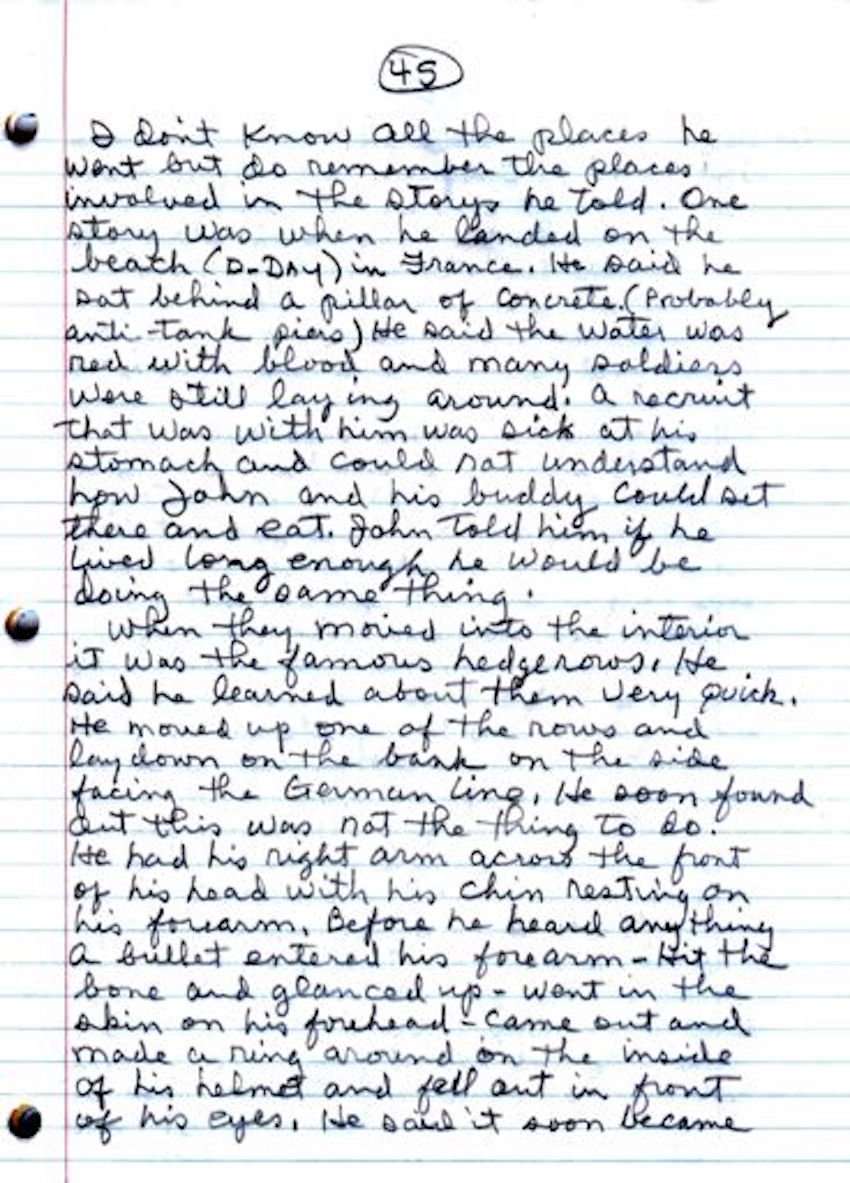 45
I don't know all the places he
went but do remember the places
involved in the storys he told. One
story was when he landed on the
beach (D-DAY) in France. He said he
sat behind a pillar of concrete. (Probably
anti-tank piers) He said the water was
red with blood and many soldiers
were still laying around. A recruit
that was with him was sick at his
stomach and could not understand
how John and his buddy could set
there and eat. John told him if he
lived long enough he would be
doing the same thing.
When they moved into the interior
it was the famous hedgerows. He
said he learned about them very quick.
He moved up one of the rows and
lay down on the bank on the side
facing the German line. He soon found
out this was not the thing to do.
He had his right arm across the front
of his head with his chin resting on
his forearm. Before he heard anything
A bullet entered his forearm - Hit the
bone and glanced up - went in the
skin on his forehead - came out and
made a ring around on the inside
of his helmet and fell out in front
of his eyes. He said it soon became